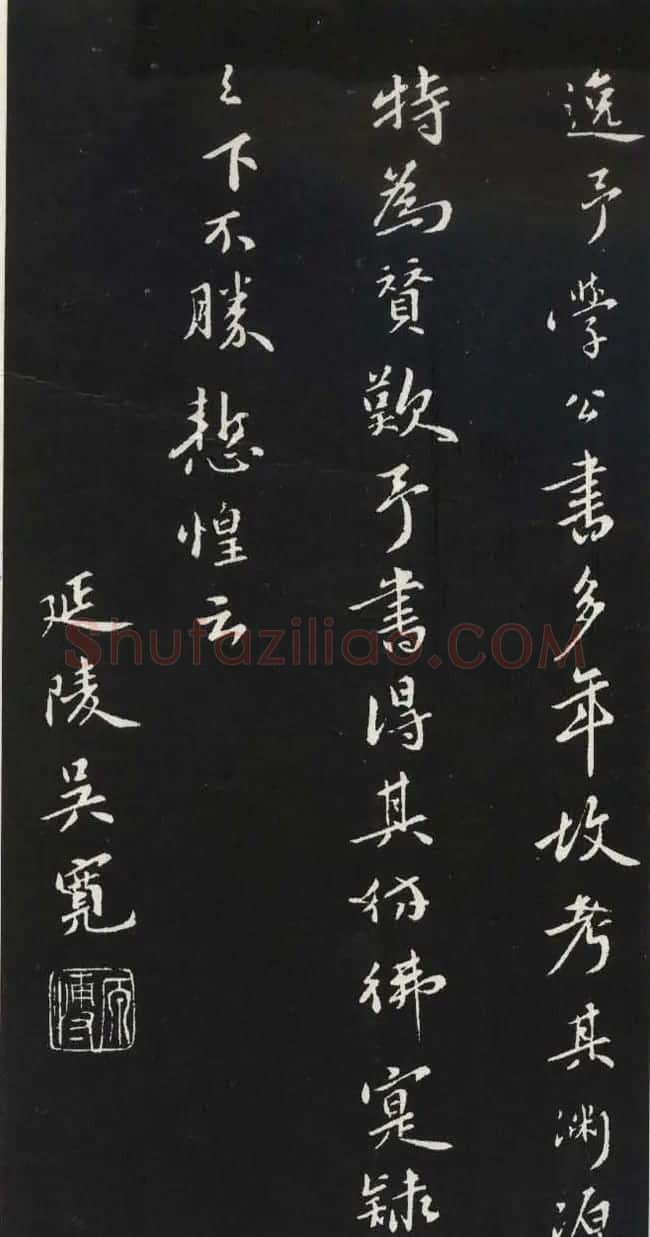 逸予学公書多年故考其渊源
特為賛歎予書得其仿彿寔隸
之下不勝慙惶云
延陵吴寬
原博
Shufaziliao.COM